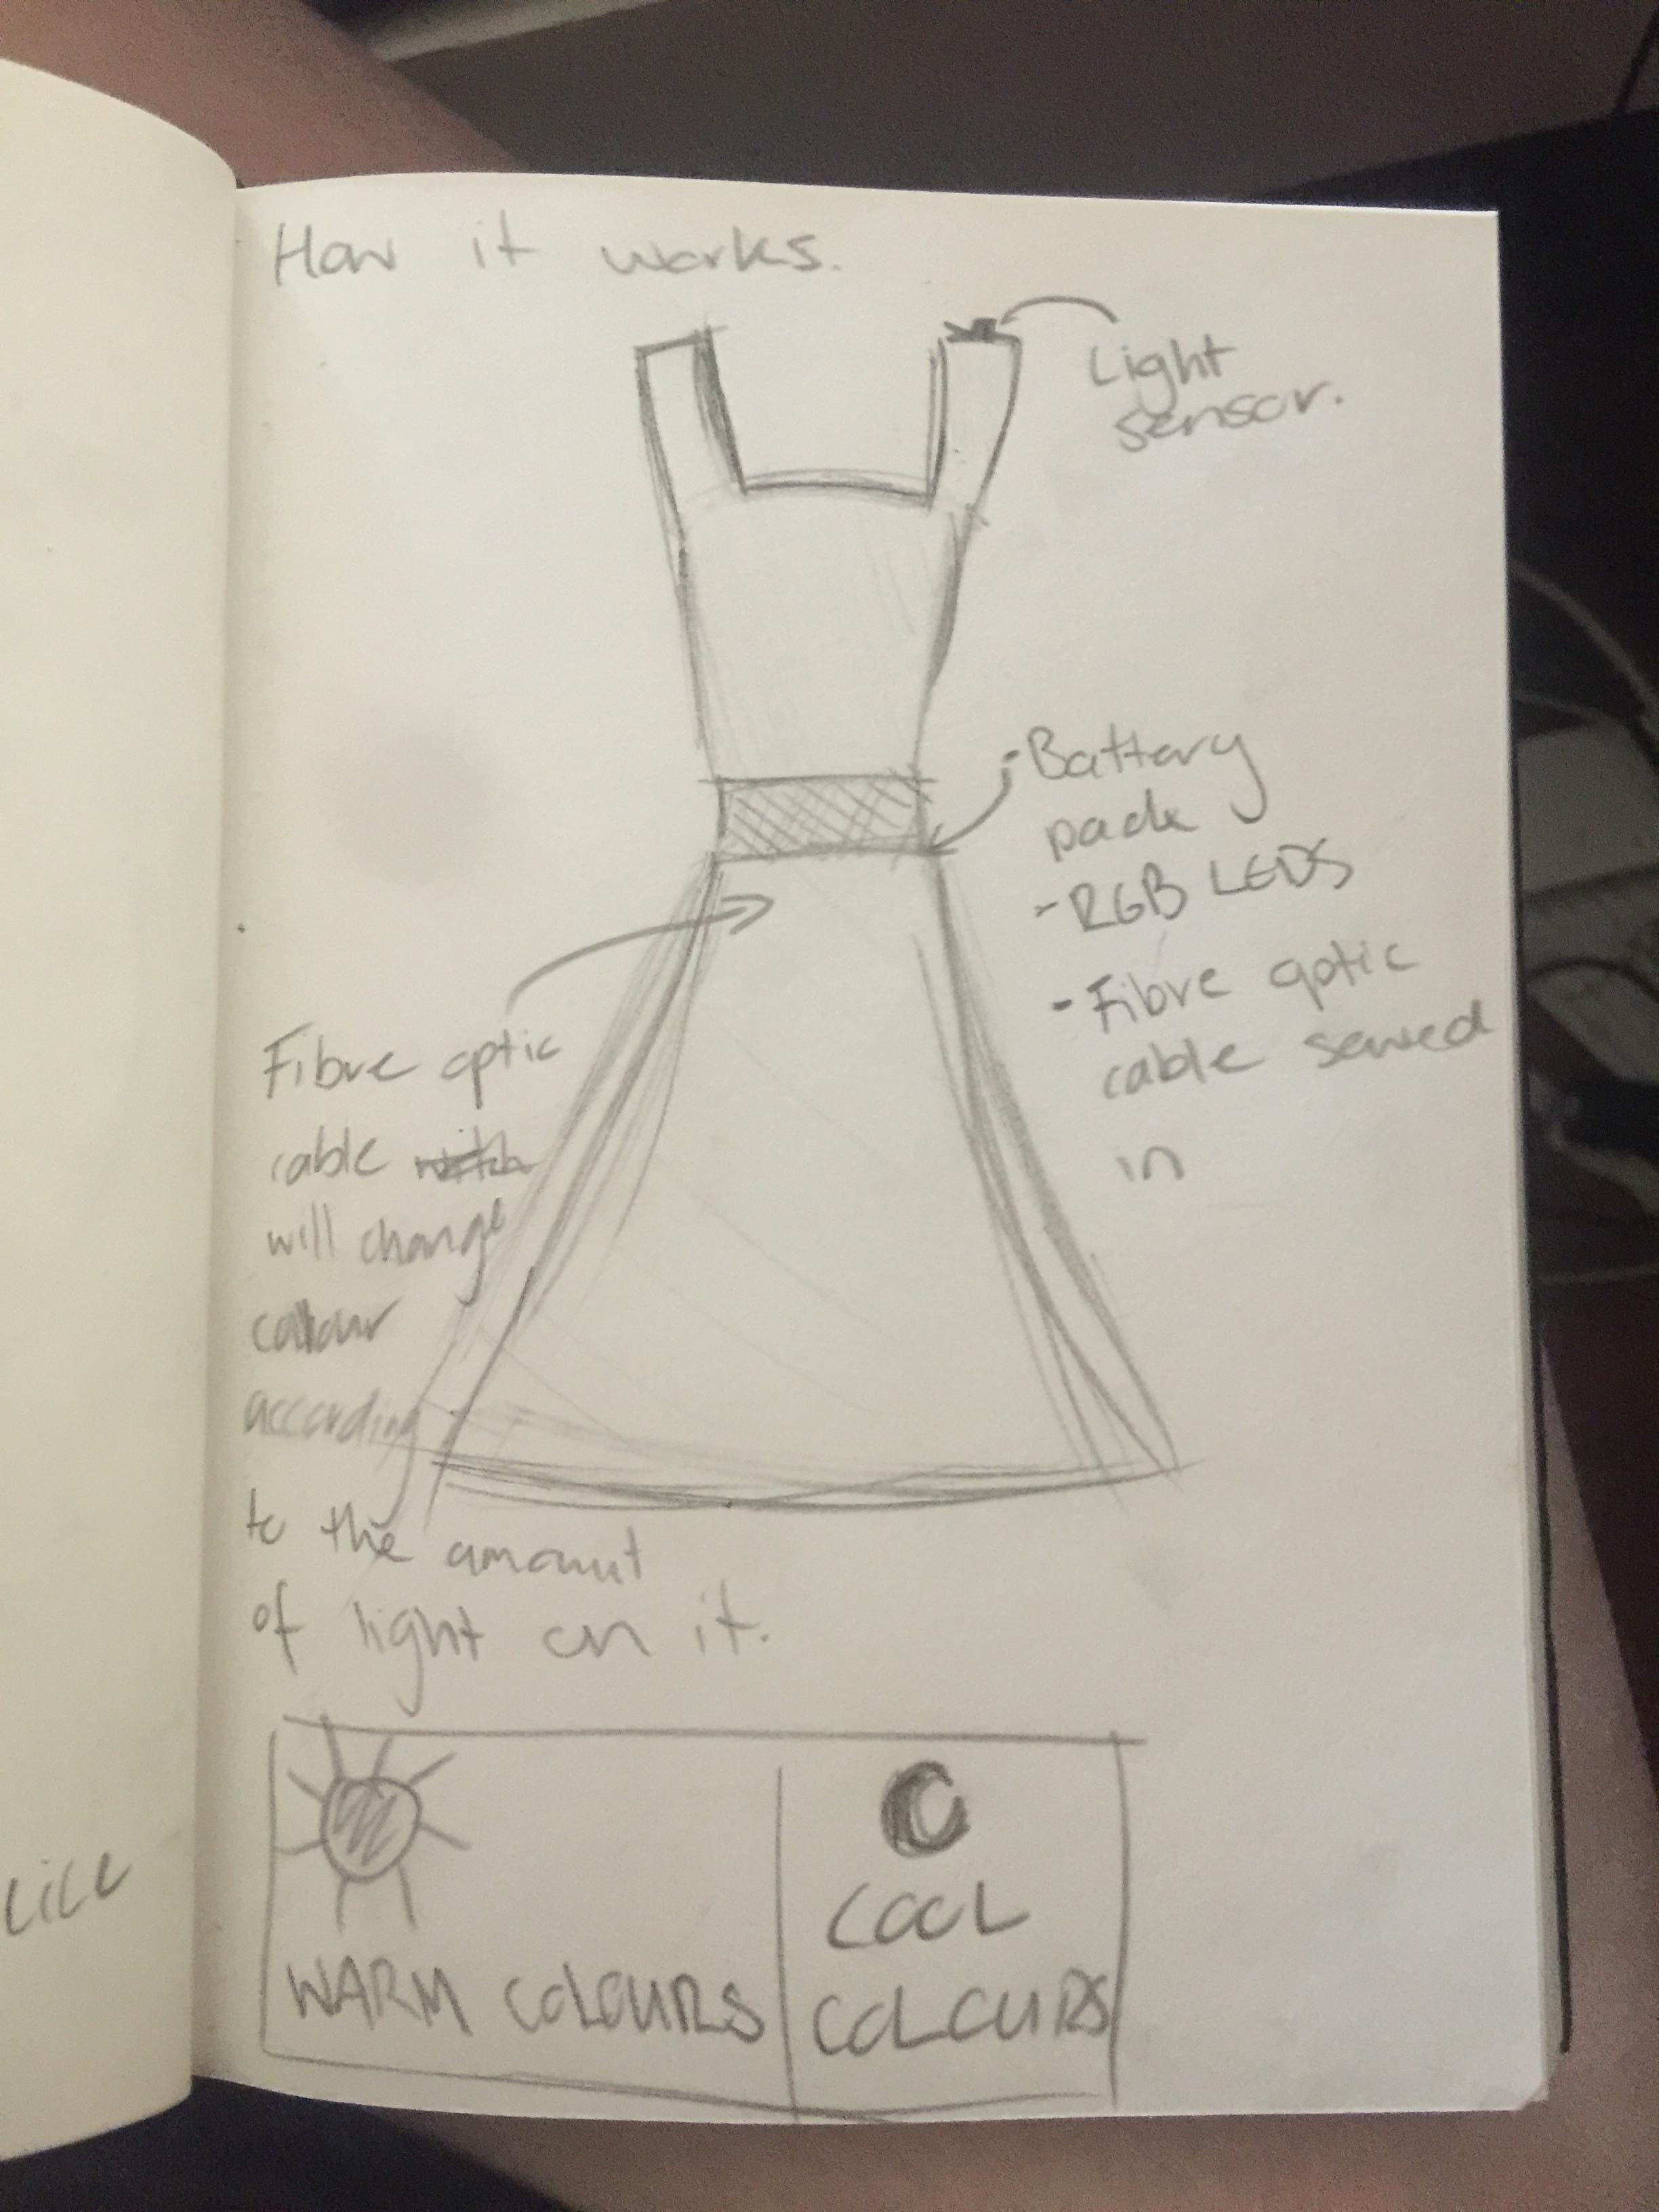 How it works.
Light
sensor.
- Battery
pack
- RGB LEDS
- Fibre optic
cable sewed
in
Fibre optic
cable
will change
colour
according
to the amount
of light on it.
WARM COLOURS
COOL
COLOURS